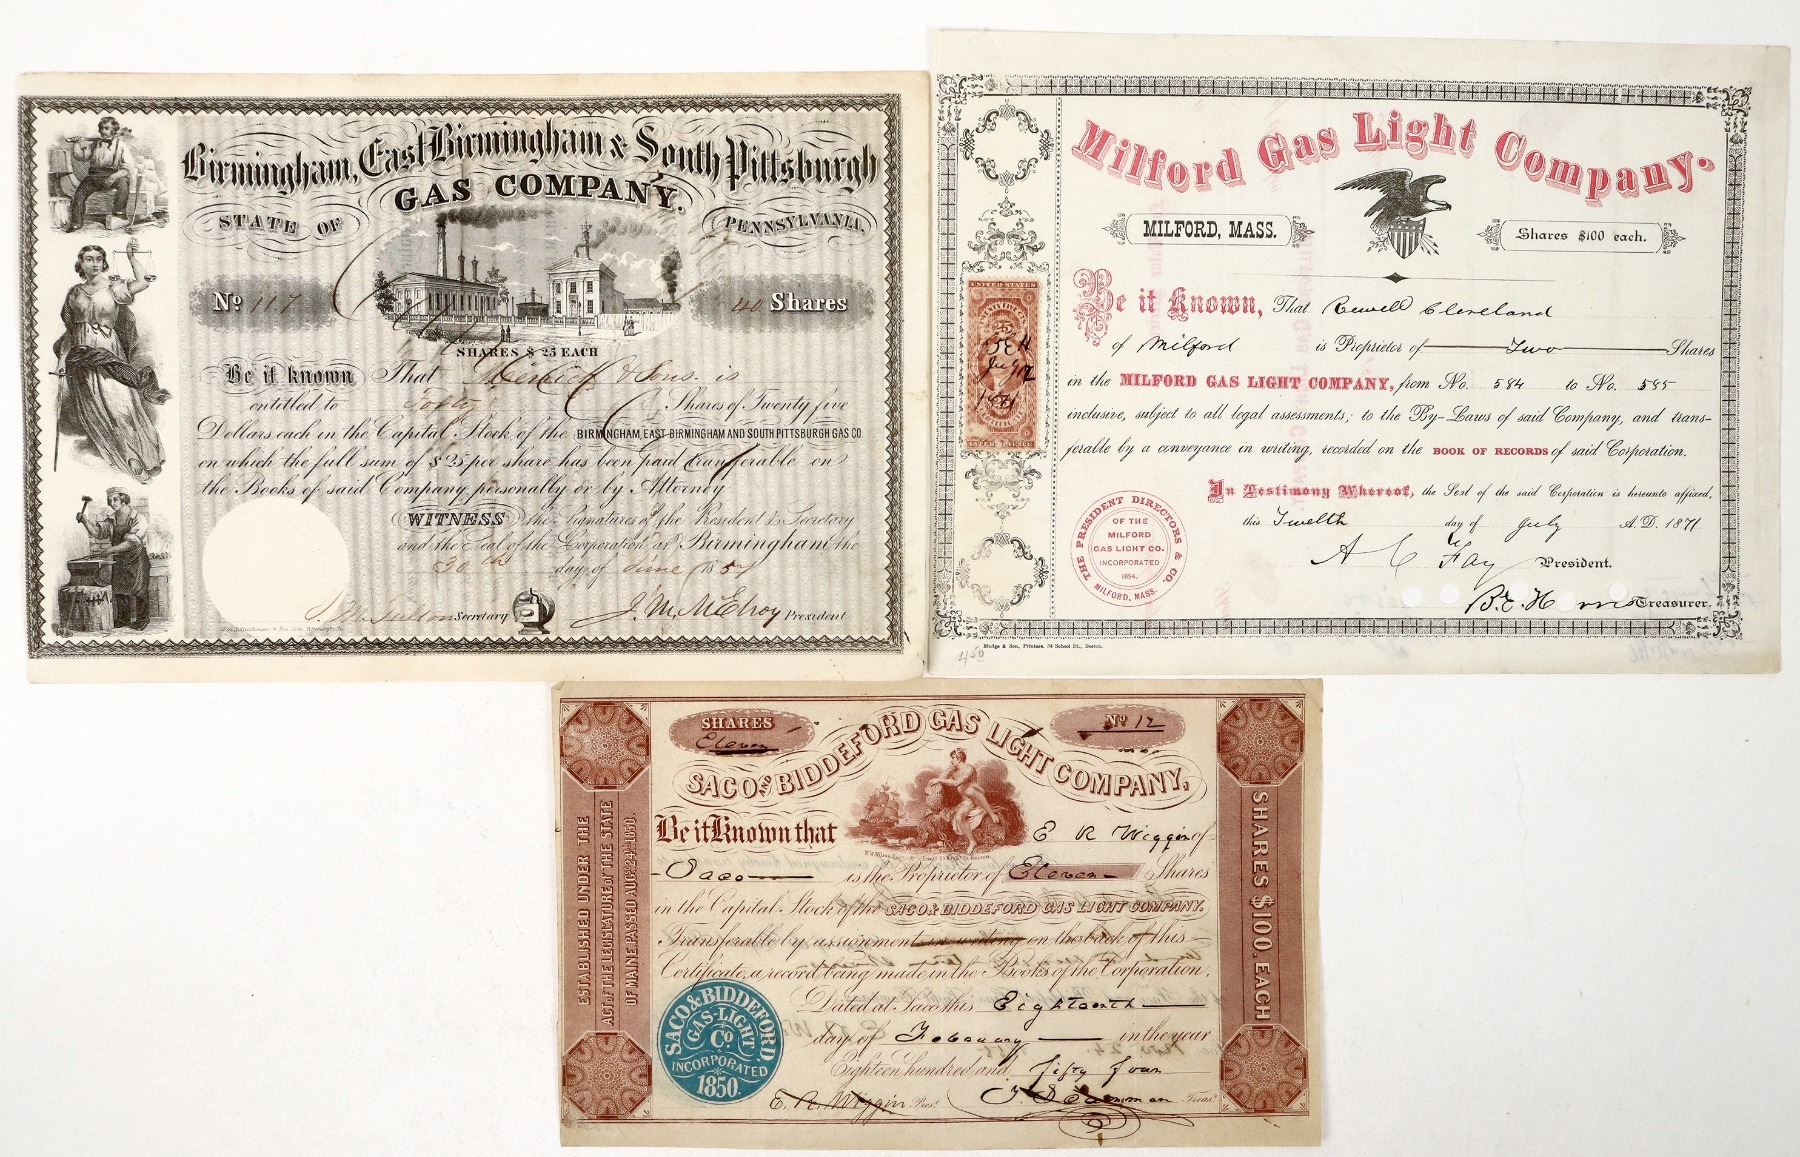 Birmingham, East Birmingham & South Pittsburgh
GAS COMPANY.
STATE OF PENNSYLVANIA.
No 117 40 Shares
SHARES $ 25 EACH
Be it known That & Sons. is
entitled to Forty Shares of Twenty five
Dollars each in the Capital Stock of the BIRMINGHAM, EAST BIRMINGHAM AND SOUTH PITTSBURGH GAS CO.
on which the full sum of $25 per share has been paid transferable on
the Books of said Company personally or by Attorney
WITNESS the Signatures of the President & Secretary
and the Seal of the Corporation at Birmingham the
30th day of June 185
Secretary J. M. McElroy President
Milford Gas Light Company.
MILFORD, MASS.
Shares $100 each.
UNITED STATES
July 12
1871
INTER. REVENUE
Be it Known, That Newell Cleveland
of Milford is Proprietor of Two Shares
in the MILFORD GAS LIGHT COMPANY, from No. 584 to No. 585
inclusive, subject to all legal assessments; to the By-Laws of said Company, and trans-
ferable by a conveyance in writing, recorded on the BOOK OF RECORDS of said Corporation.
In Testimony Whereof, the Seal of the said Corporation is hereunto affixed,
this Twelth day of July A.D. 1871
THE PRESIDENT DIRECTORS & CO.
OF THE
MILFORD
GAS LIGHT CO.
INCORPORATED
1854.
MILFORD, MASS.
A C Fay President.
Treasurer.
Mudge & Son, Printers, 34 School St., Boston.
450
SHARES
Eleven
No 12
SACO & BIDDEFORD GAS LIGHT COMPANY,
Be it Known that E R Wiggin of
Saco is the Proprietor of Eleven Shares
in the Capital Stock of the SACO & BIDDEFORD GAS LIGHT COMPANY.
Transferable by assignment in writing on the back of this
Certificate, a record being made in the Books of the Corporation.
Dated at Saco this Eighteenth
day of February in the year
Eighteen hundred and fifty four
E. R. Wiggin Pres. Treas.
ESTABLISHED UNDER THE
ACT OF THE LEGISLATURE OF THE STATE
OF MAINE, PASSED AUG. 24TH 1850.
SHARES $100. EACH
SACO & BIDDEFORD
GAS-LIGHT
CO.
INCORPORATED
1850.